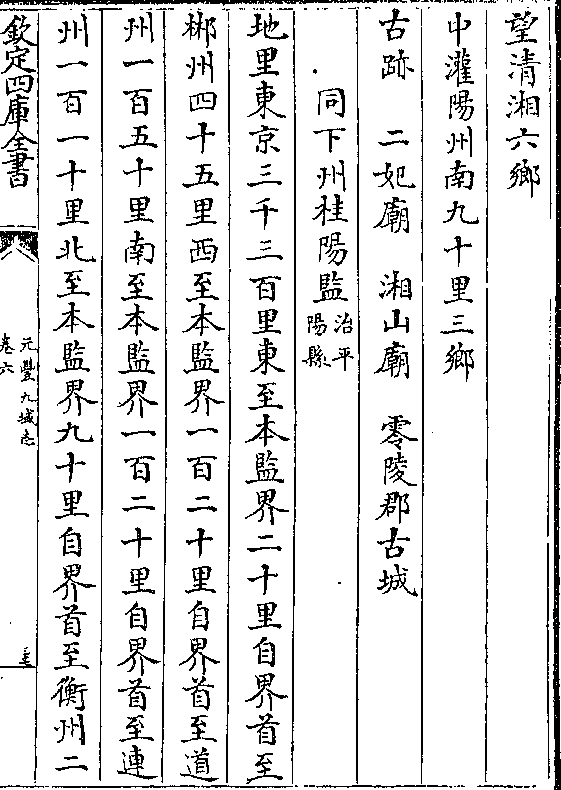 望清湘六鄉
中灌陽州南九十里三鄉
古跡　二妃廟　湘山廟　零陵郡古城
同下州桂陽監治平
陽縣
地里東京三千三百里東至本監界二十里自界首至
郴州四十五里西至本監界一百二十里自界首至道
州一百五十里南至本監界一百二十里自界首至連
州一百一十里北至本監界九十里自界首至衡州二
欽定四庫全書
元豐九域志
卷六